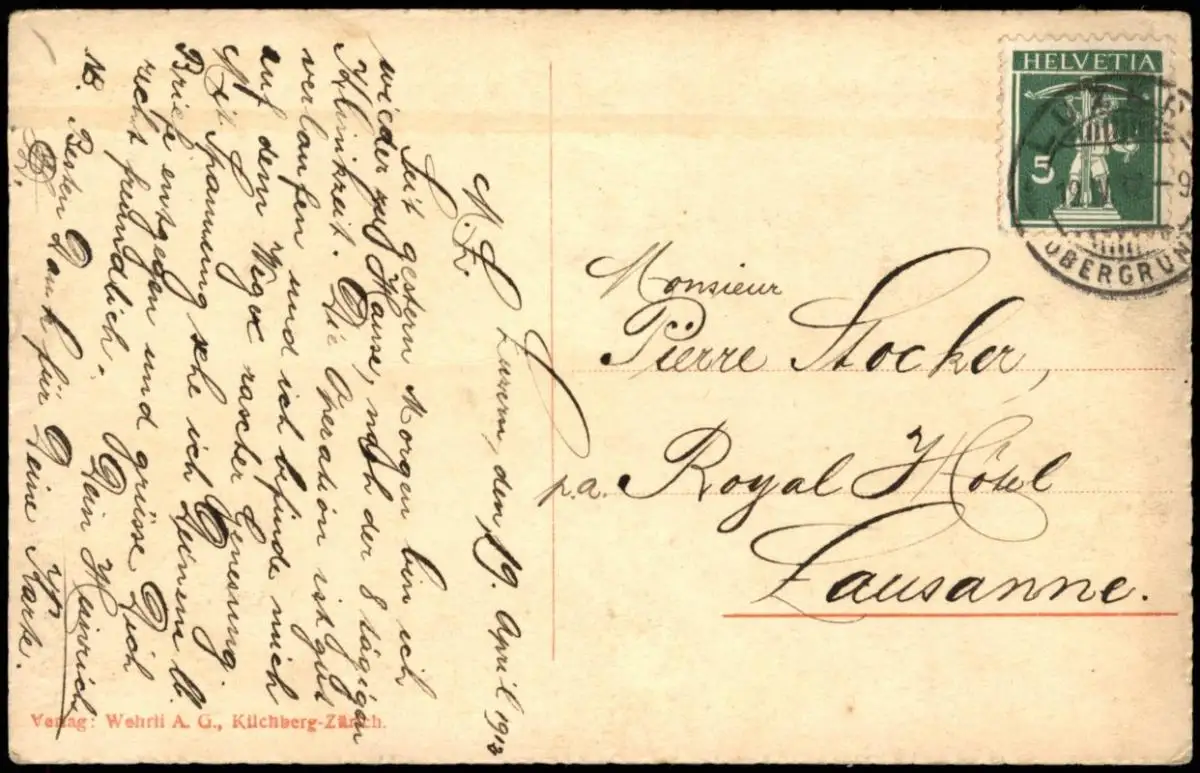 Luzern, den 19. April 1913
M. L.
Seit gestern Morgen bin ich
wieder zu Hause, nach der 8 tägigen
Klinikzeit. Die Operation ist gut
verlaufen und ich befinde mich
auf dem Wege rascher Genesung.
Mit Spannung sehe ich Deinem lb.
Briefe entgegen und grüsse Dich
recht freundlich. Dein Heinrich
NB. Besten Dank für Deine Karte.
D. O.
Verlag: Wehrli A. G., Kilchberg-Zürich.
HELVETIA
5
LUZERN
OBERGRUND
Monsieur
Pierre Stocker,
p.a. Royal Hôtel
Lausanne.